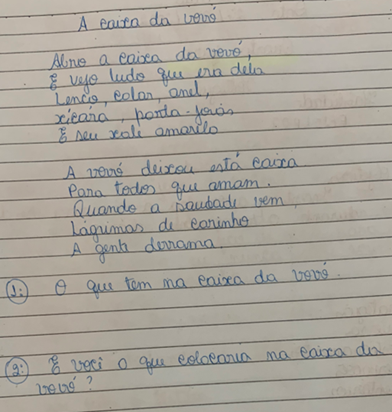 A caixa da vovó
Abro a caixa da vovó,
E vejo tudo que era dela
Lenço, colar, anel,
xícara, porta-joias
E seu xale amarelo
A vovó deixou está caixa
Para todos que amam.
Quando a saudade vem,
Lágrimas de carinho
A gente derrama.
1: O que tem na caixa da vovó.
2: E você o que colocaria na caixa da
vovó?